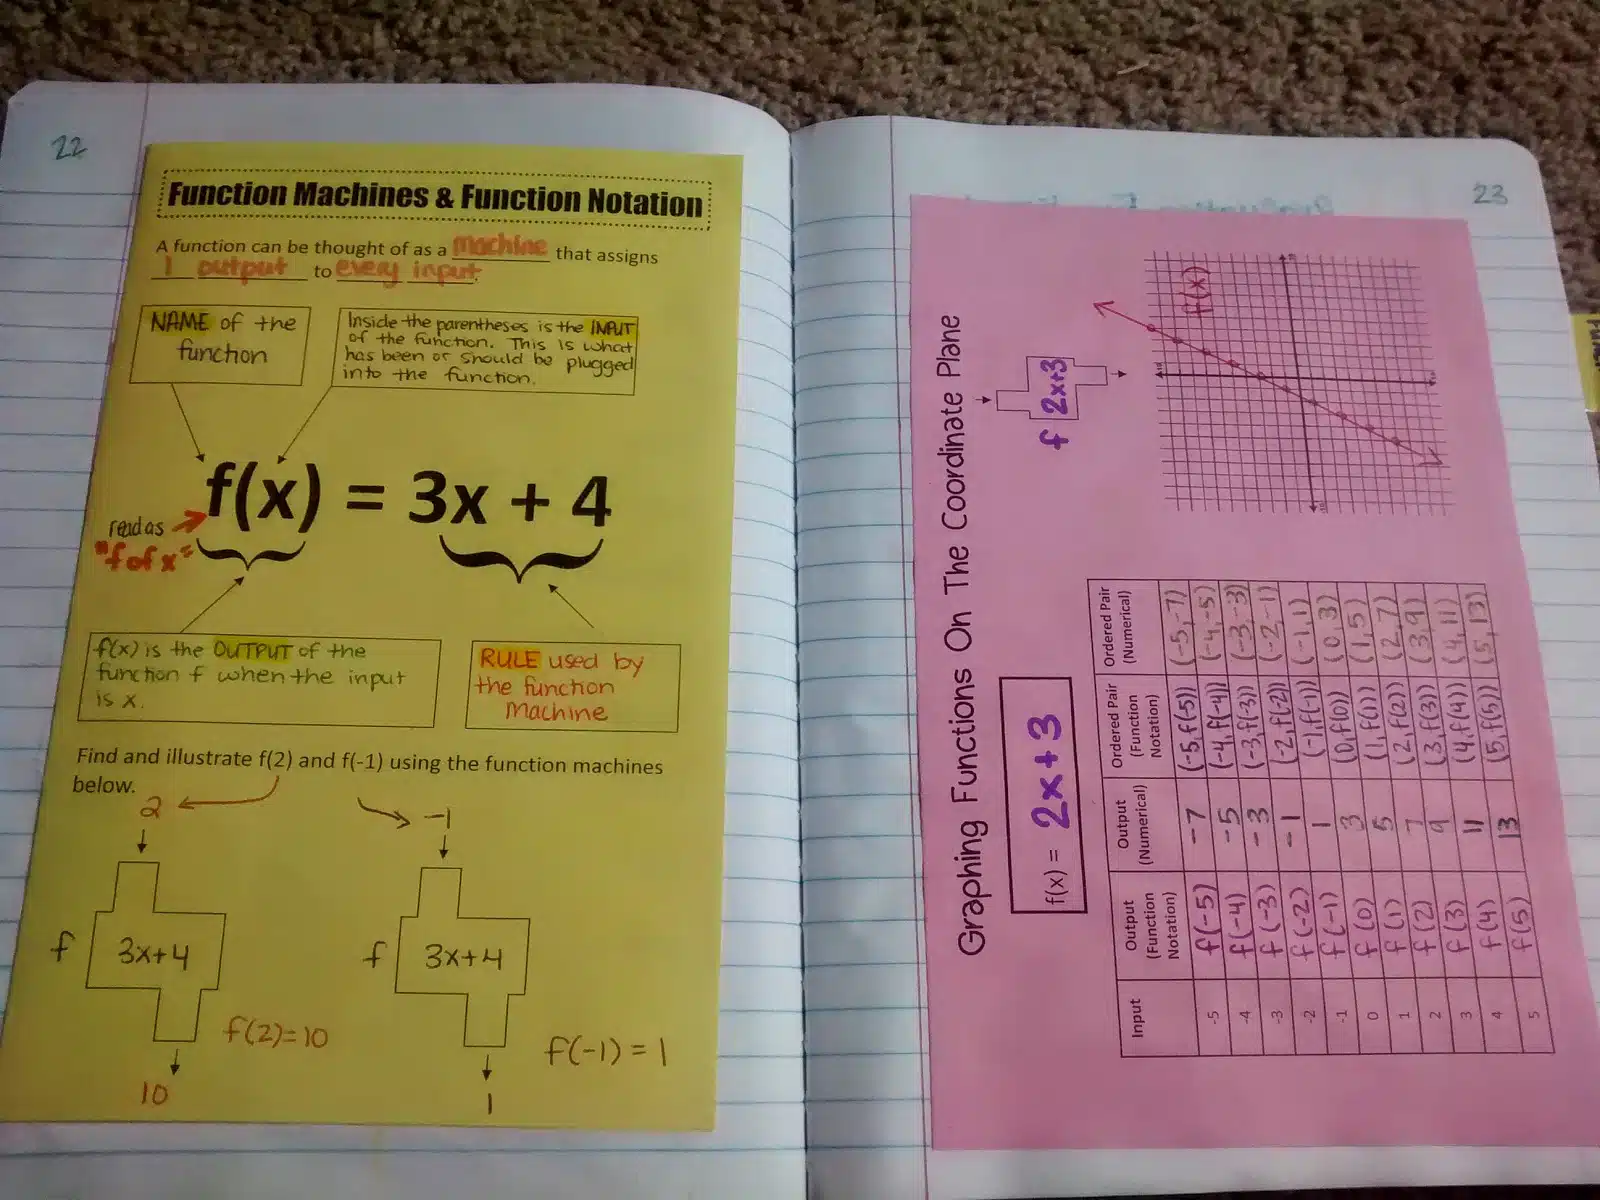 22
Function Machines & Function Notation
A function can be thought of as a machine that assigns
1 output to every input.
NAME of the
function
Inside the parentheses is the INPUT
of the function. This is what
has been or should be plugged
into the function.
f(x) = 3x + 4
read as
"f of x"
f(x) is the OUTPUT of the
function f when the input
is x.
RULE used by
the function
Machine
Find and illustrate f(2) and f(-1) using the function machines
below.
2
-1
f
3x+4
f
3x+4
f(2)=10
f(-1) = 1
10
1
23
Graphing Functions On The Coordinate Plane
f(x) = 2x+3
f 2x+3
f(x)
Input
Output
(Function
Notation)
Output
(Numerical)
Ordered Pair
(Function
Notation)
Ordered Pair
(Numerical)
-5 f(-5) -7 (-5,f(-5)) (-5,-7)
-4 f(-4) -5 (-4,f(-4)) (-4,-5)
-3 f(-3) -3 (-3,f(-3)) (-3,-3)
-2 f(-2) -1 (-2,f(-2)) (-2,-1)
-1 f(-1) 1 (-1,f(-1)) (-1,1)
0 f(0) 3 (0,f(0)) (0,3)
1 f(1) 5 (1,f(1)) (1,5)
2 f(2) 7 (2,f(2)) (2,7)
3 f(3) 9 (3,f(3)) (3,9)
4 f(4) 11 (4,f(4)) (4,11)
5 f(5) 13 (5,f(5)) (5,13)